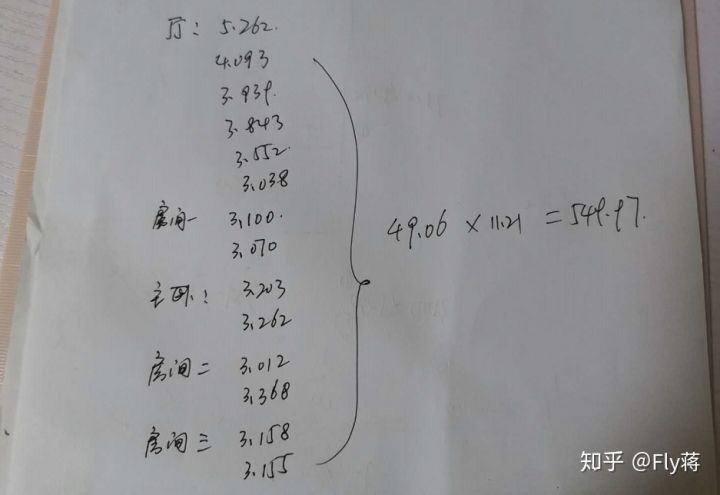 厅: 5.262.
4.093
3.939.
3.843
3.552.
3.038
房间一 3.100.
3.070
主卧: 3.203
3.262
房间二 3.012
3.368
房间三 3.158
3.155
49.06 × 11.21 = 549.97.
知乎 @Fly蒋